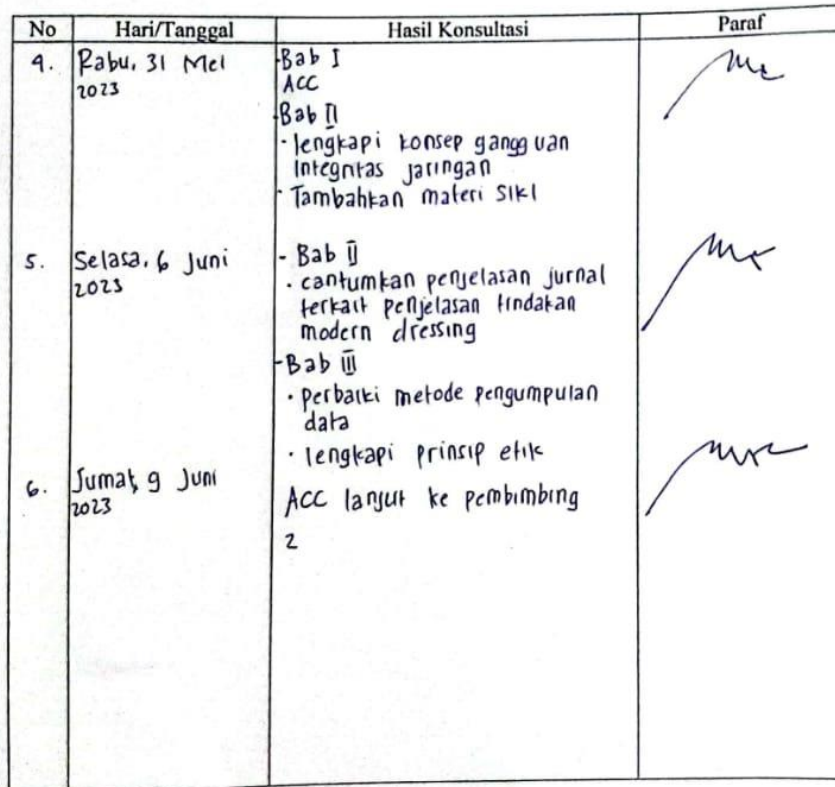 No Hari/Tanggal Hasil Konsultasi Paraf
4. Rabu, 31 Mei
2023
-Bab I
ACC
-Bab II
· lengkapi konsep gangguan
Integritas jaringan
· Tambahkan materi SIKI
5. Selasa, 6 Juni
2023
- Bab II
· cantumkan penjelasan jurnal
terkait penjelasan tindakan
modern dressing
-Bab III
· perbaiki metode pengumpulan
data
· lengkapi prinsip etik
6. Jumat, 9 Juni
2023
ACC lanjut ke pembimbing
2